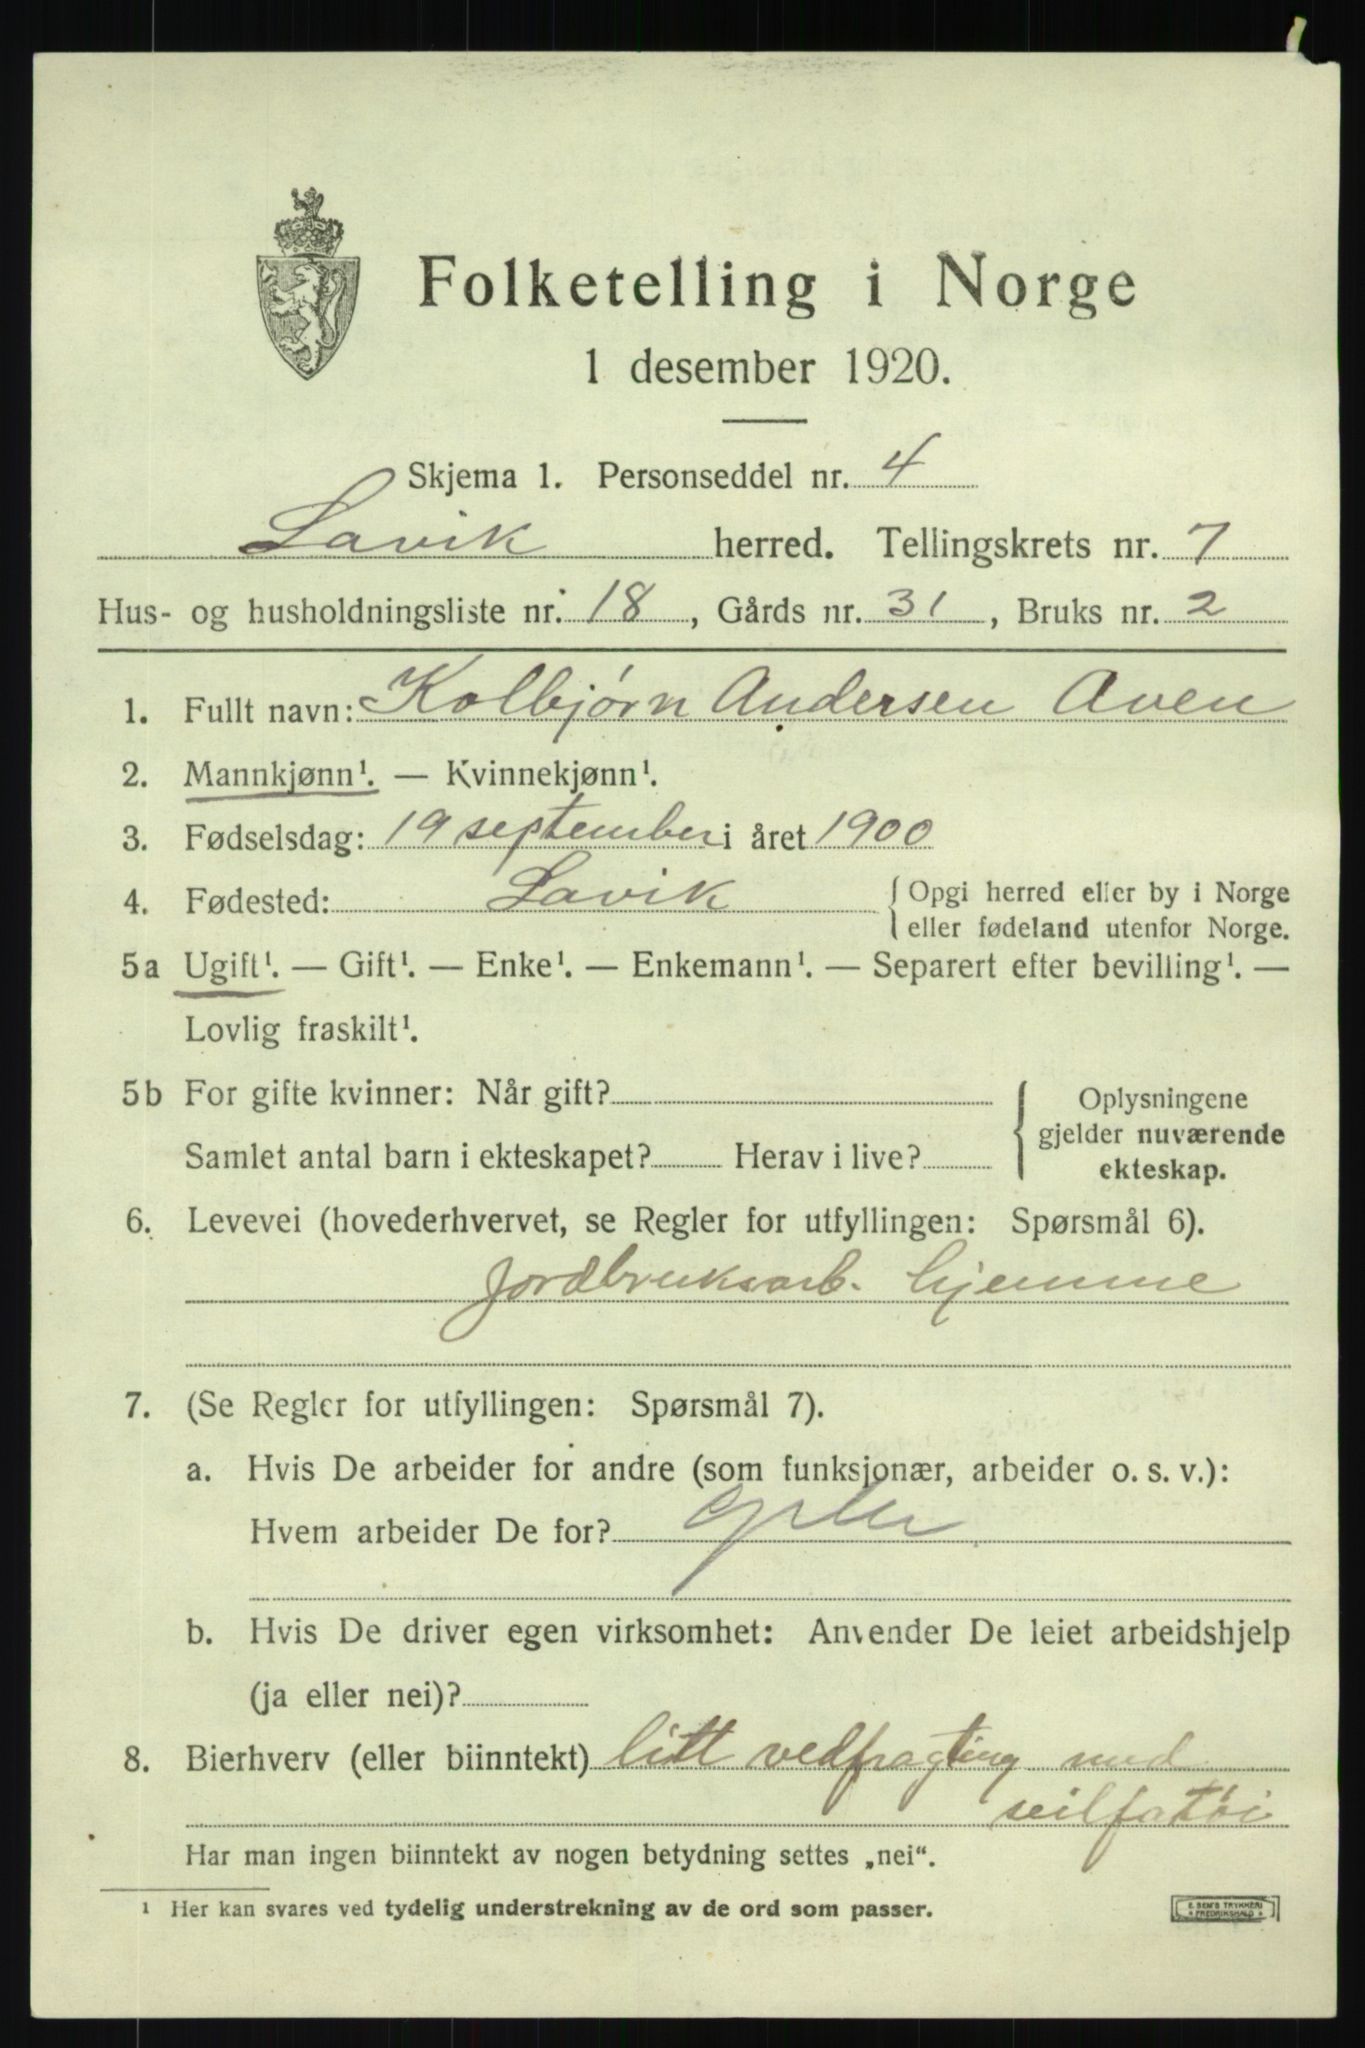 Folketelling i Norge
1 desember 1920.
Skjema 1. Personseddel nr. 4
Lavik herred. Tellingskrets nr. 7
Hus- og husholdningsliste nr. 18, Gårds nr. 31, Bruks nr. 2
1. Fullt navn: Kolbjørn Andersen Aven
2. Mannkjønn¹. — Kvinnekjønn¹.
3. Fødselsdag: 19 september i året 1900
4. Fødested: Lavik { Opgi herred eller by i Norge
eller fødeland utenfor Norge.
5a Ugift¹. — Gift¹. — Enke¹. — Enkemann¹. — Separert efter bevilling¹. —
Lovlig fraskilt¹.
5b For gifte kvinner: Når gift?
Samlet antal barn i ekteskapet? Herav i live?
{ Oplysningene
gjelder nuværende
ekteskap.
6. Levevei (hovederhvervet, se Regler for utfyllingen: Spørsmål 6).
Jordbruksarb. hjemme
7. (Se Regler for utfyllingen: Spørsmål 7).
a. Hvis De arbeider for andre (som funksjonær, arbeider o. s. v.):
Hvem arbeider De for?
b. Hvis De driver egen virksomhet: Anvender De leiet arbeidshjelp
(ja eller nei)?
8. Bierhverv (eller biinntekt) litt vedfragting med
seilfatøi
Har man ingen biinntekt av nogen betydning settes „nei“.
¹ Her kan svares ved tydelig understrekning av de ord som passer.
E. SEM'S TRYKKERI
FREDRIKSHALD